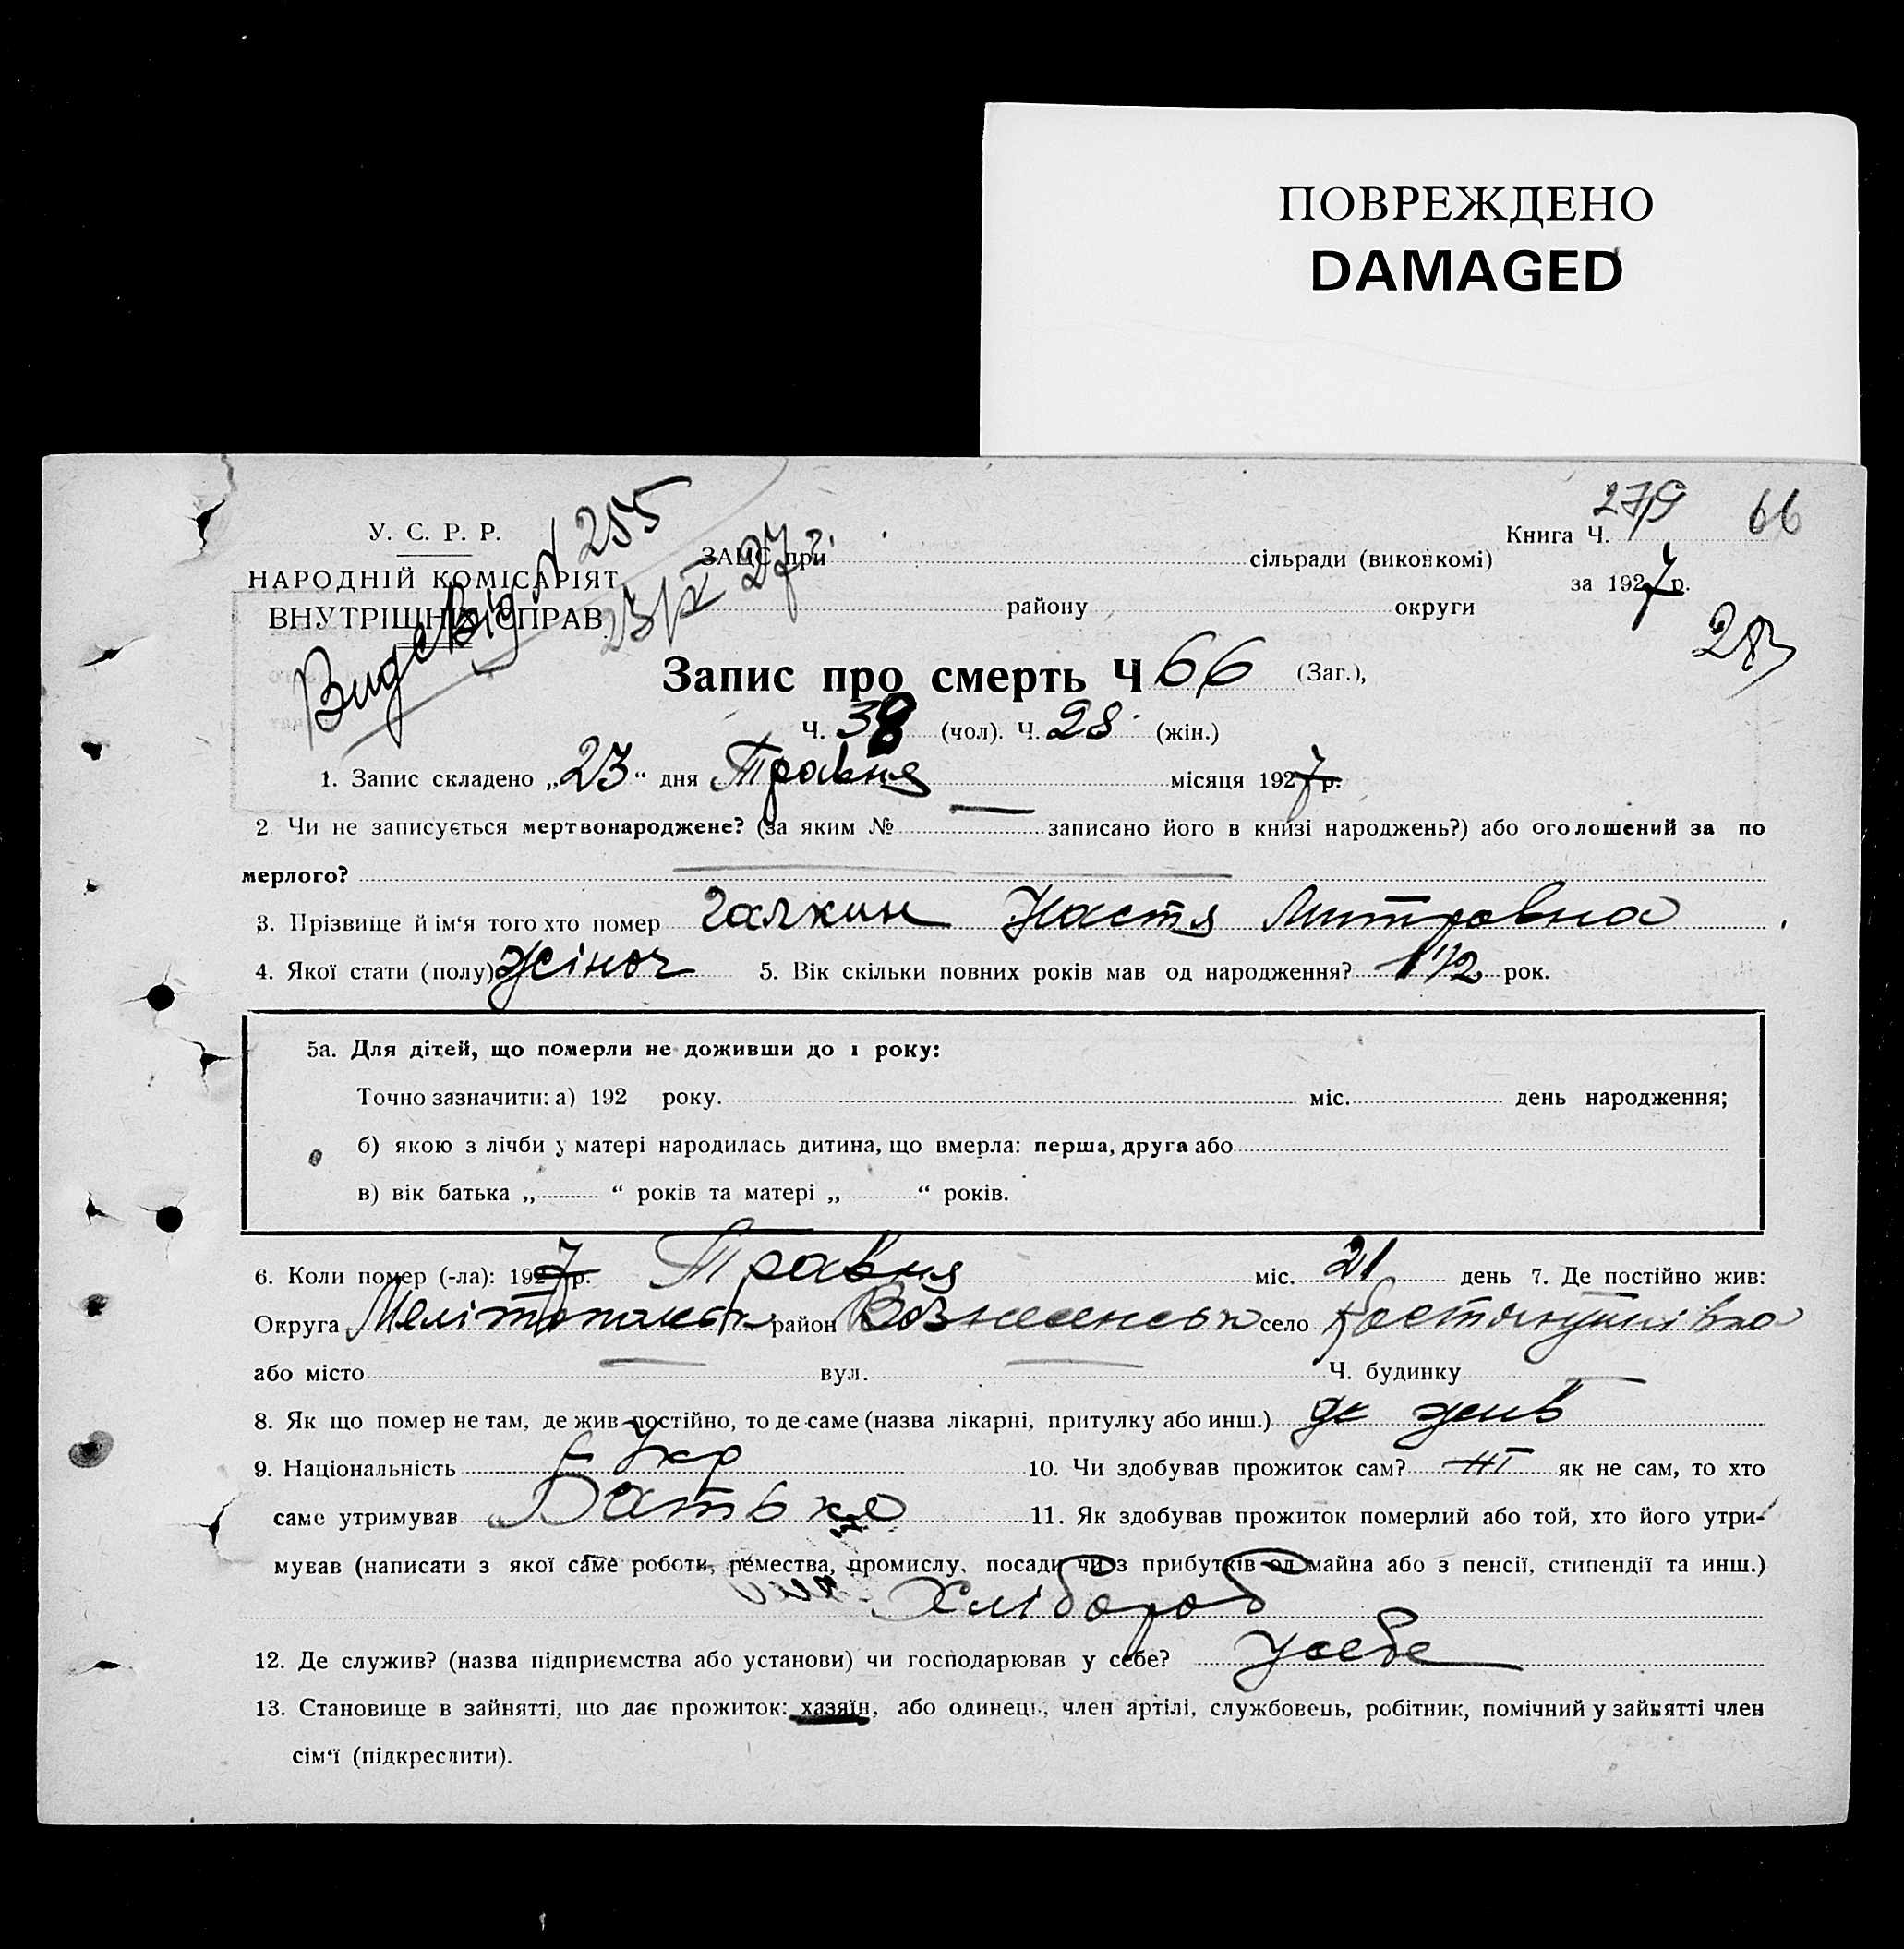 ПОВРЕЖДЕНО
DAMAGED
Книга Ч. 279 66
У. С. Р. Р.
НАРОДНІЙ КОМІСАРІЯТ
ВНУТРІШНІХ СПРАВ.
№ 255
23/IX 27 г.
ЗАЦС при сільради (виконкомі)
за 1927 р.
району округи
283
Запис про смерть Ч 66 (Заг.),
Ч. 38 (чол). Ч. 28 (жін.)
1. Запис складено „23“ дня Травня місяця 1927 р.
2 Чи не записується мертвонароджене? (за яким № — записано його в книзі народжень?) або оголошений за по
мерлого? —
3. Прізвище й ім‘я того хто помер Галкин Настя Митровна
4. Якої стати (полу) жіноч 5. Вік скільки повних років мав од народження? 1 1/2 рок.
5а. Для дітей, що померли не доживши до 1 року:
Точно зазначити: а) 192 року. міс. день народження;
б) якою з лічби у матері народилась дитина, що вмерла: перша, друга або
в) вік батька „ “ років та матері „ “ років.
6. Коли помер (-ла): 1927 р. Травня міс. 21 день 7. Де постійно жив:
Округа Мелітопольськ район Вознесенськ село
або місто — вул. — Ч. будинку —
8. Як що помер не там, де жив постійно, то де саме (назва лікарні, притулку або инш.) де жив
9. Національність Укр 10. Чи здобував прожиток сам? ні як не сам, то хто
саме утримував Батько 11. Як здобував прожиток померлий або той, хто його утри-
мував (написати з якої саме роботи, ремества, промислу, посади чи з прибутків од майна або з пенсії, стипендії та инш.)
Хлібороб
12. Де служив? (назва підприємства або установи) чи господарював у себе? у себе
13. Становище в зайнятті, що дає прожиток: хазяїн, або одинець, член артілі, службовець, робітник, помічний у зайнятті член
сім‘ї (підкреслити).